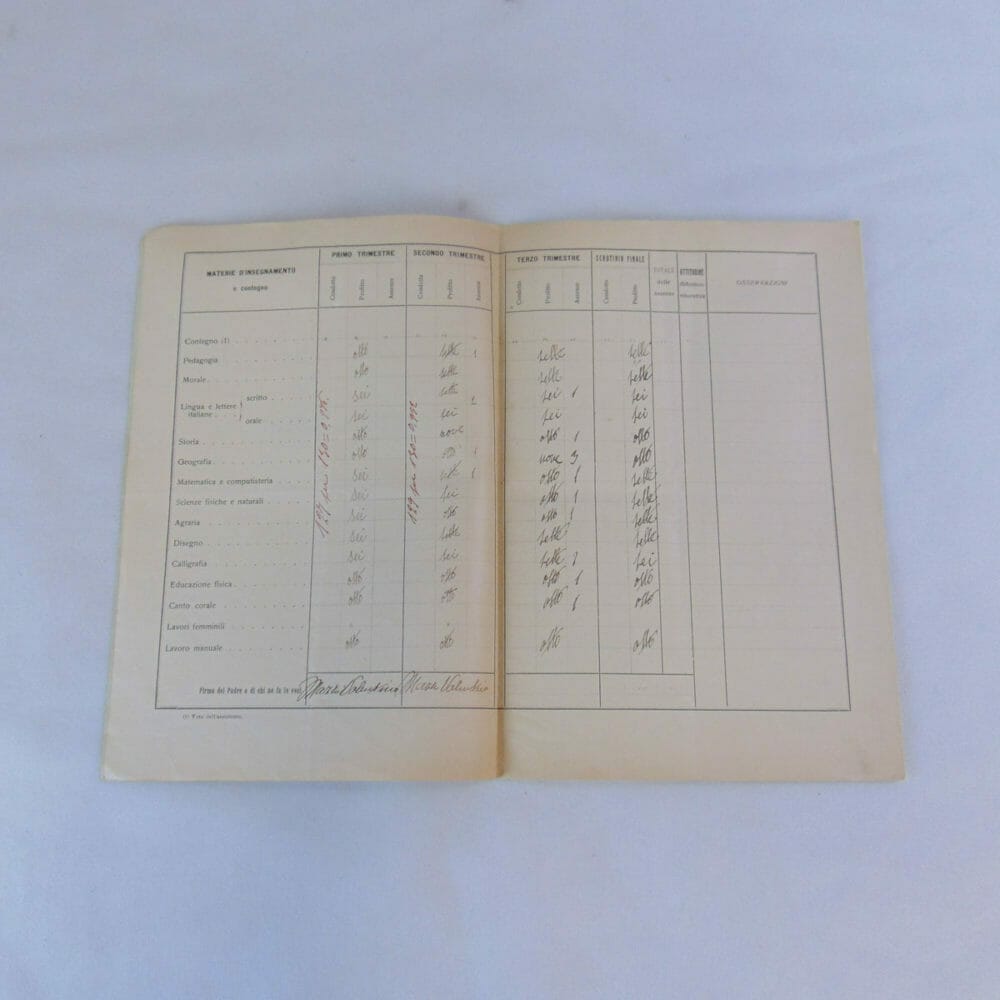 MATERIE D'INSEGNAMENTO e contegno PRIMO TRIMESTRE SECONDO TRIMESTRE TERZO TRIMESTRE SCRUTINIO FINALE TOTALE delle assenze ATTITUDINE didattico educativa OSSERVAZIONI
Condotta Profitto Assenze Condotta Profitto Assenze Condotta Profitto Assenze Condotta Profitto
Contegno (1)
Pedagogia otto sette 1 sette sette
Morale otto sette sette sette
Lingua e lettere italiane scritto sei sette sei 1 sei
orale sei sei sei sei
Storia otto nove otto 1 otto
Geografia otto otto 1 nove 3 otto
Matematica e computisteria sei sette 1 otto 1 sette
Scienze fisiche e naturali sei sei otto 1 sette
Agraria sei otto otto 1 sette
Disegno sei sette sette sette
Calligrafia sei sei sette sei
Educazione fisica otto otto otto 1 otto
Canto corale otto otto otto 1 otto
Lavori femminili
Lavoro manuale otto otto otto otto
127 per 130=0,976
129 per 130=0,992
Firma del Padre o di chi ne fa le veci Valentino Valentino
(1) Voto dell'assistente.